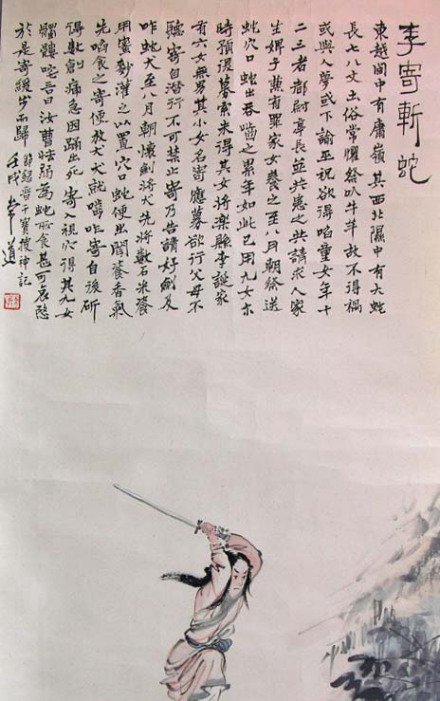 李寄斬蛇
東越閩中有庸嶺其西北隰中有大蛇
長七八丈土俗常懼祭以牛羊故不得禍
或與人夢或下諭巫祝欲得啗童女年十
二三者都尉亭長並共患之共請求人家
生婢子蕪有罪家女養之至八月朝祭送
蛇穴口蛇出吞嚙之累年如此已用九女尒
時預復募索未得其女將樂縣李誕家
有六女無男其小女名寄應募欲行父母不
聽寄自潛行不可禁止寄乃告請好劍及
咋蛇犬至八月朝懷劍將犬先將數石米餈
用蜜麨灌之以置穴口蛇便出聞餈香氣
先啗食之寄便放犬犬就嚙咋寄自後斫
得數創痛急因踊出死寄入視穴得其九女
髑髏咤言曰汝曹怯弱為蛇所食甚可哀愍
於是寄緩步而歸 節錄晉干寶搜神記
壬戌